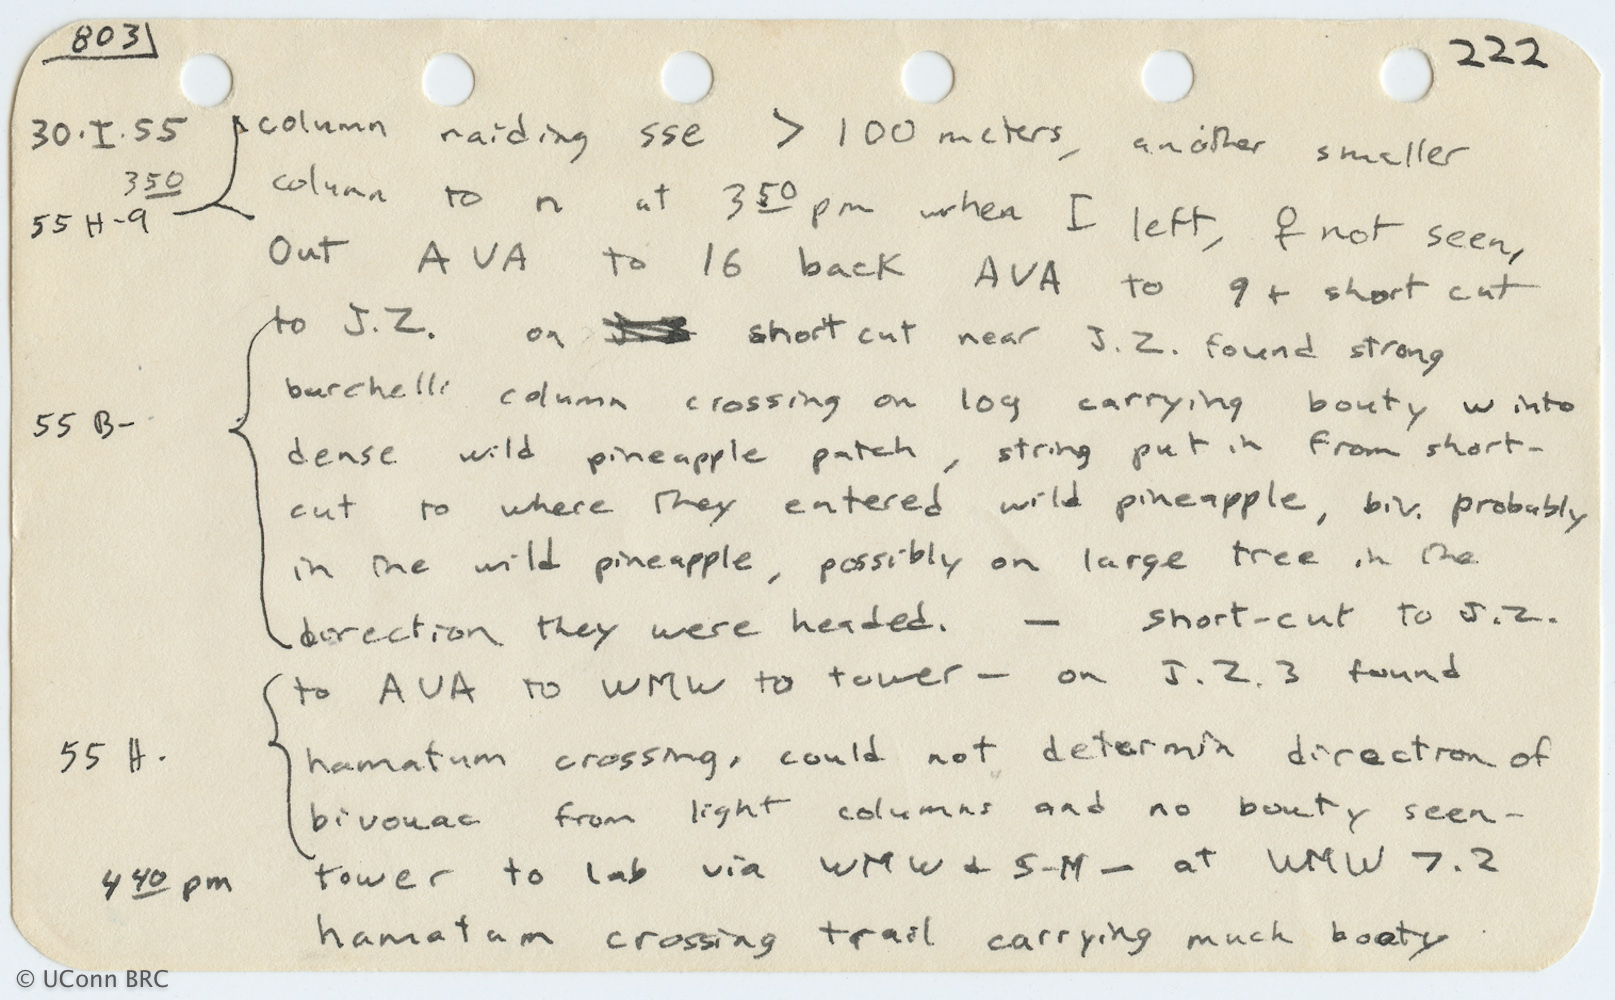 803
222
30.I.55 column raiding sse > 100 meters, another smaller
350 column to n at 350 pm when I left, ♀ not seen,
55 H-9
Out AVA to 16 back AVA to 9 + short cut
to J.Z. on short cut near J.Z. found strong
burchelli column crossing on log carrying bouty w into
55 B-
dense wild pineapple patch, string put in from short-
cut to where they entered wild pineapple, biv. probably
in the wild pineapple, possibly on large tree in the
direction they were headed. — short-cut to J.Z.
to AVA to WMW to tower — on J.Z.3 found
55 H. hamatum crossing, could not determin direction of
bivouac from light columns and no bouty seen -
440 pm tower to lab via WMW + S-M — at WMW 7.2
hamatum crossing trail carrying much booty
© UConn BRC